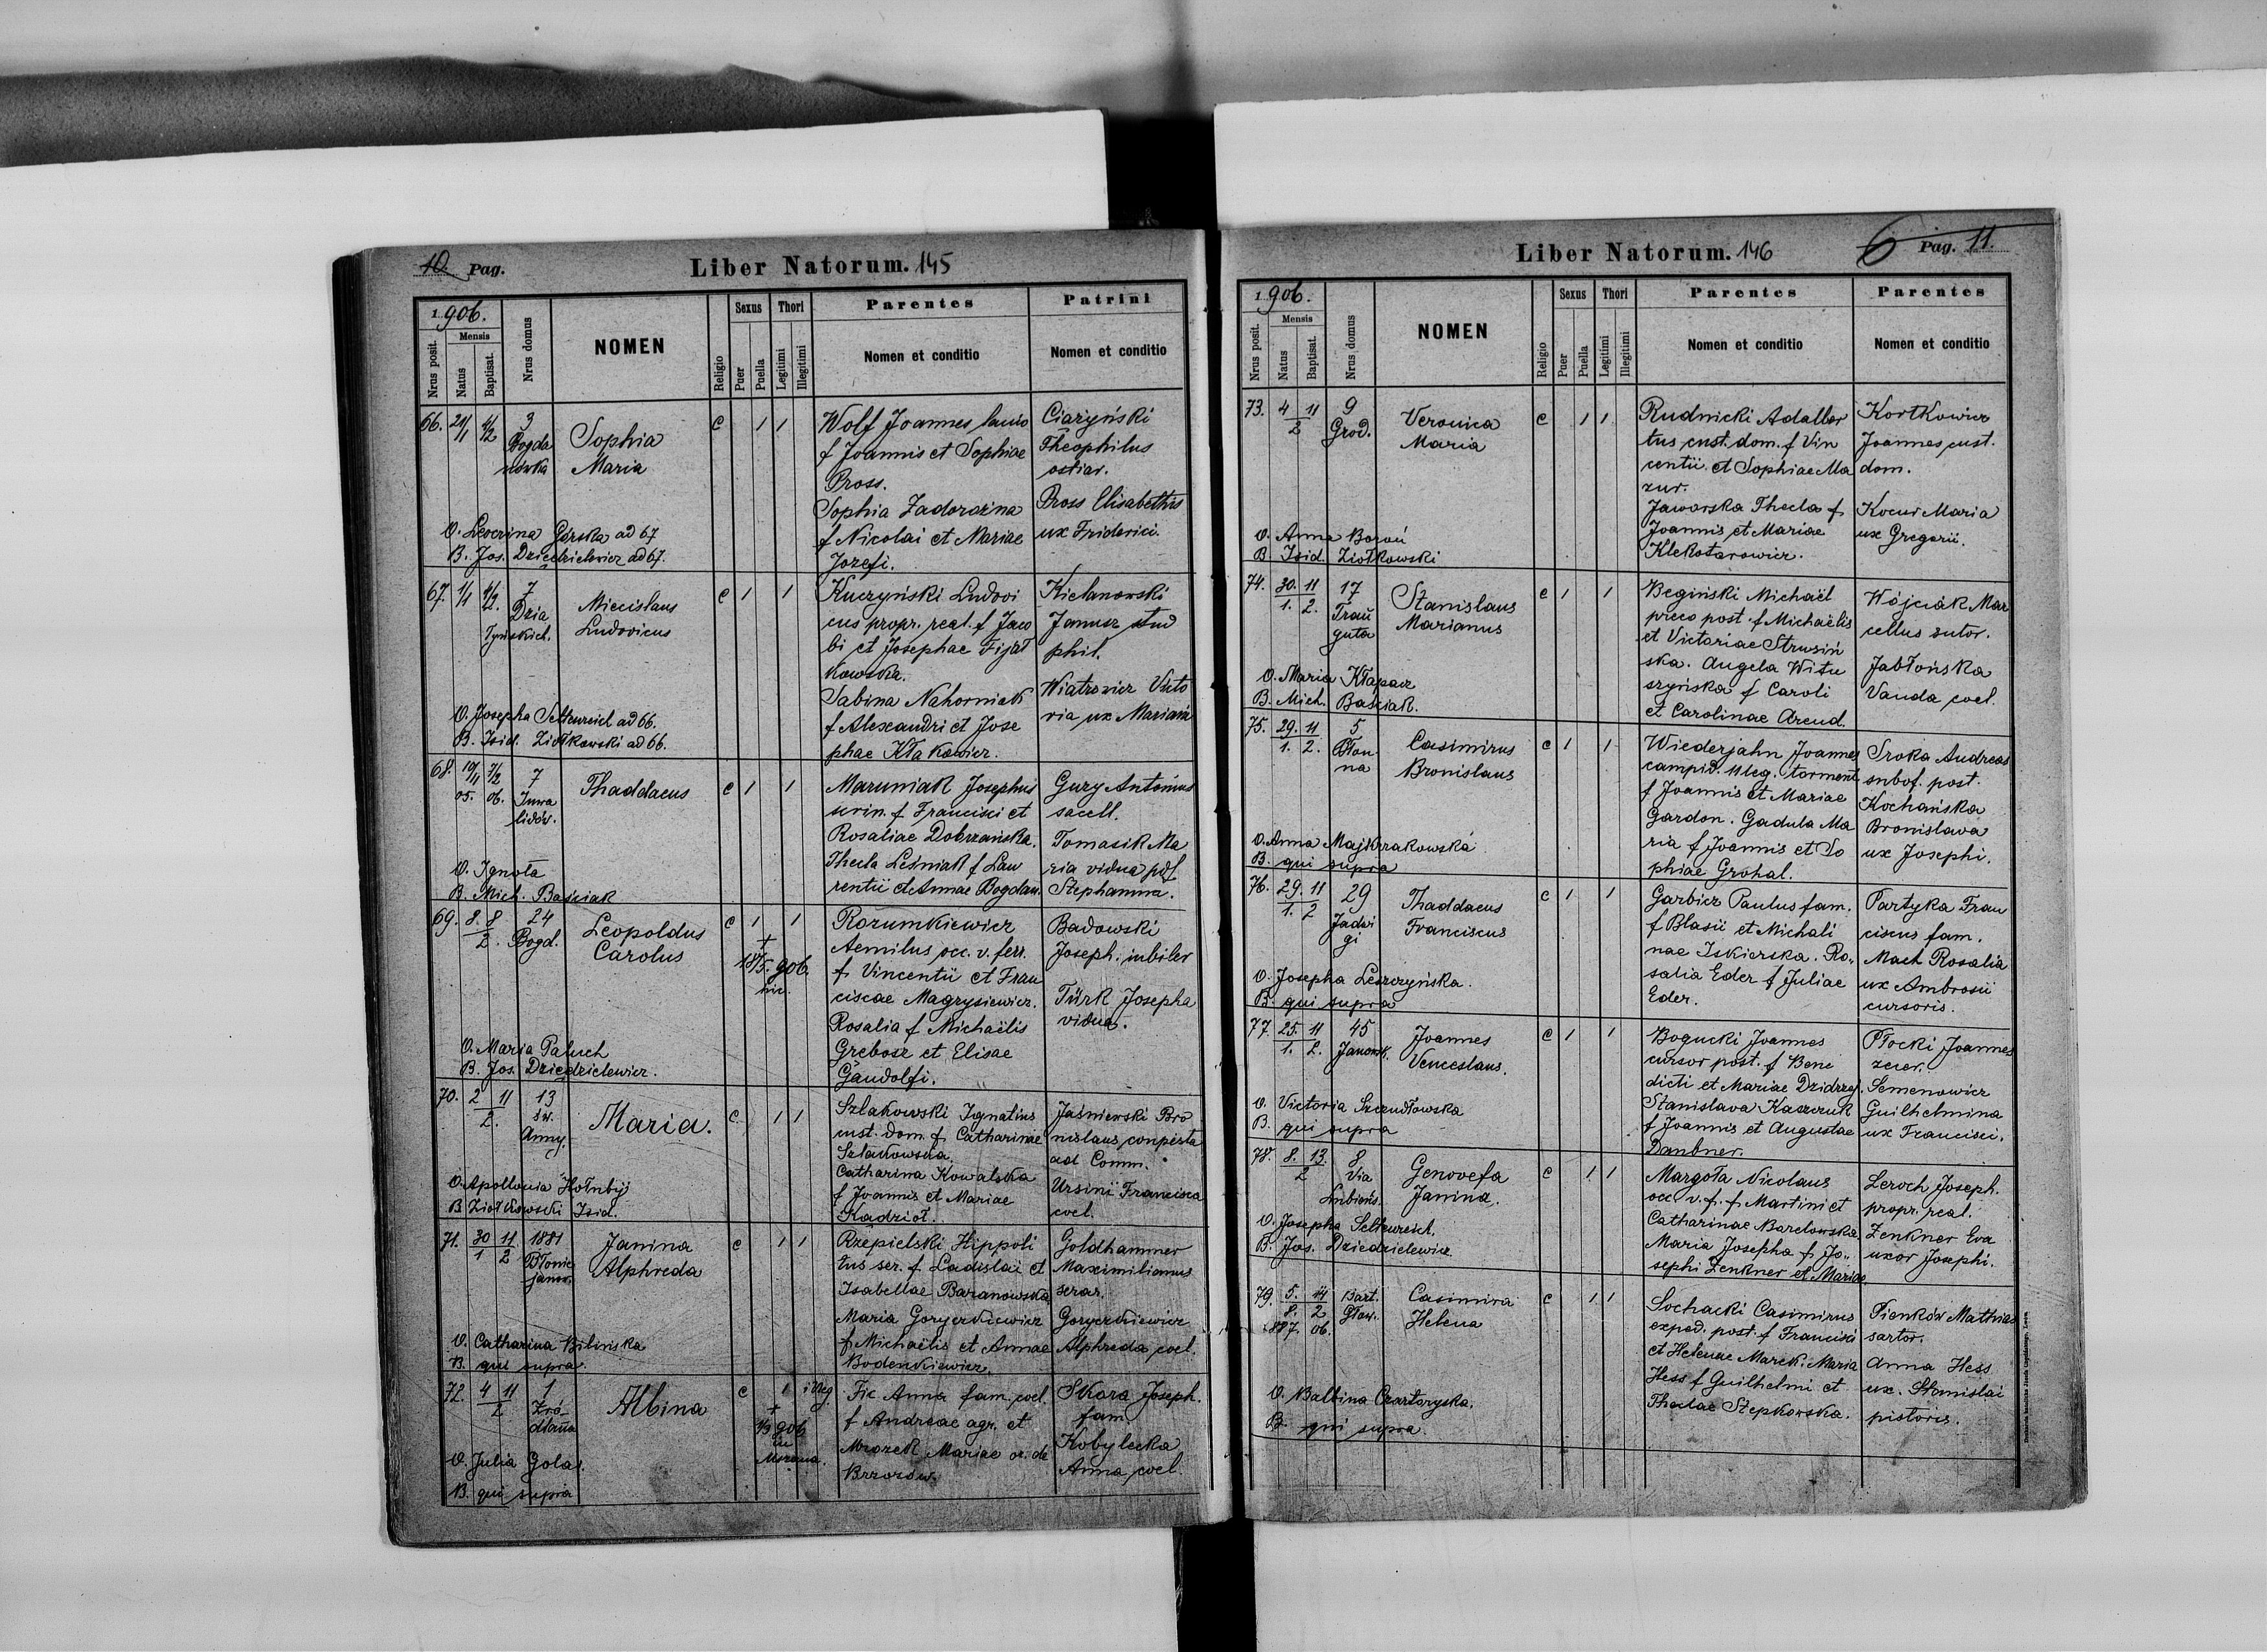 10. Pag.
Liber Natorum. 145
1906.
Nrus posit.
Mensis
Natus
Baptisat.
Nrus domus
NOMEN
Religio
Sexus
Puer
Puella
Thori
Legitimi
Illegitimi
Parentes
Nomen et conditio
Patrini
Nomen et conditio
66. 21/1 4/2 3
Bogda
nówka
Sophia
Maria
c 1 1
Wolf Joannes lanio
f Joannis et Sophiae
Pross.
Sophia Zadorożna
f Nicolai et Mariae
Jozefi.
Ciażyński
Theophilus
ostiar.
Pross Elisabetha
ux Friderici.
O. Severina Górska ad 67
B. Jos. Dziędzielewicz ad 67.
67. 1/1 4/2. 7
Dzia
łyńskich.
Miecislaus
Ludovicus
c 1 1
Kuczyński Ludovi
cus propr. real. f Jaco
bi et Josephae Fijał
kowska.
Sabina Nahorniak
f Alexandri et Jose
phae Kłakowicz.
Kielanowski
Janusz stud
phil.
Wiatrowicz Victo
ria ux Mariani
O. Josepha Seltenreich ad 66.
B. Isid. Ziółkowski ad 66.
68. 19/11 05. 7/2 06. 7
Inwa
lidów.
Thaddaeus
c 1 1
Maruniak Josephus
f Francisci et
Rosaliae Dobrzańska.
Thecla Leśniak f Lau
rentii et Annae Bogdan.
Gury Antonius
sacell.
Tomasik Ma
ria vidua
Stephanina.
O. Ignota
B. Mich. Baściak
69. 8. 8 2. 24
Bogd.
Leopoldus
Carolus
c 1 1
+
18/5. 906.
hic.
Rozumkiewicz
Aemilus occ. v. ferr.
f Vincentii et Fran
ciscae Magrysiewicz.
Rosalia f Michaëlis
Grebosz et Elisae
Gandolfi.
Badowski
Joseph. iubiler
Türk Josepha
vidua.
O. Maria Paluch
B. Jos. Dziędzielewicz.
70. 2 11 2. 13
św.
Anny.
Maria.
c 1 1
Szlakowski Ignatius
cust. dom. f Catharinae
Szlakowska.
Catharina Kowalska
f Joannis et Mariae
Kadziol.
Jaśniewski Bro
nislaus conpesta
ad Comm.
Ursini Francisca
coel.
O. Apollonia Hołubij
B Ziołkowski Isid.
71. 30 11 1 2 1881
Błonie
janow.
Janina
Alphreda
c 1 1
Rzepielski Hippoli
tus ser. f Ladislai et
Isabellae Baranowska
Maria Goryczkiewicz
f Michaëlis et Annae
Bodenkiewicz.
Goldhammer
Maximilianus
serar.
Goryczkiewicz
Alphreda coel.
O. Catharina Bilińska
B. qui supra.
72. 4 11 2 1
Źró-
dlana
Albina
c 1 illeg.
+
1/3 906
in
Fic Anna fam. coel.
f Andreae agr. et
Mrozek Mariae or. de
Brzozów.
Skora Joseph.
fam.
Kobylecka
Anna coel.
O. Julia Golas.
B. qui supra
Liber Natorum. 146
6 Pag. 11.
1906.
Nrus posit.
Mensis
Natus
Baptisat.
Nrus domus
NOMEN
Religio
Sexus
Puer
Puella
Thori
Legitimi
Illegitimi
Parentes
Nomen et conditio
Parentes
Nomen et conditio
73. 4 11 2 9
Grod.
Veronica
Maria
c 1 1
Rudnicki Adalber
tus cust. dom. f Vin
centii et Sophiae Ma
zur.
Jaworska Thecla f
Joannis et Mariae
Klekotarowicz.
Kortkowicz
Joannes cust.
dom.
Kocur Maria
ux Gregorii.
O. Anna Boroń
B. Isid. Ziołkowski
74. 30. 11 1. 2. 17
Trau
guta
Stanislaus
Marianus
c 1 1
Begiński Michaël
preco post. f Michaëlis
et Victoriae Strusiń
ska. Angela Witu
szyńska f Caroli
et Carolinae Arend.
Wójciak Mar
cellus sutor.
Jabłońska
Vanda coel.
O. Maria Kłapacz
B. Mich. Baściak.
75. 29. 11 1. 2. 5
Błon
na
Casimirus
Bronislaus
c 1 1
Wiederjahn Joannes
campid. 11 leg. torment
f Joannis et Mariae
Gardon. Gadula Ma
ria f Joannis et So
phiae Grohal.
Sroka Andreas
subof. post.
Kochańska
Bronislava
ux Josephi.
O. Anna Majkrzakowska
B. qui supra
76. 29. 11 1. 2 29
Jadwi
gi
Thaddaeus
Franciscus
c 1 1
Garbicz Paulus fam.
f Blasii et Michali
nae Iskierska. Ro„
salia Eder f Juliae
Eder.
Partyka Fran
ciscus fam.
Mach Rosalia
ux Ambrosii
cursoris.
O. Josepha Leszczyńska.
B. qui supra
77. 25. 11 1. 2. 45
Janowsk.
Joannes
Venceslaus.
c 1 1
Bogucki Joannes
cursor post. f Bene
dicti et Mariae Dzidrzej
Stanislava Kaszczuk
f Joannis et Augustae
Danbner.
Płocki Joannes
zecer.
Semenowicz
Guilhelmina
ux Francisci.
O. Victoria Szczudłowska
B. qui supra
78. 8. 13. 2 8
Via
Lubieńs.
Genovefa
Janina.
c 1 1
Margoła Nicolaus
occ v. f. f Martini et
Catharinae Barelowska
Maria Josepha f Jo„
sephi Zenkner et Mariae
Leroch Joseph.
propr. real.
Zenkner Eva
uxor Josephi.
O. Josepha Seltenreich.
B. Jos. Dziedzielewicz
79. 5. 14 8. 2 887. 06. Bart.
Głow.
Casimira
Helena
c 1 1
Sochacki Casimirus
exped. post. f Francisci
et Helenae Marek. Maria
Hess f Guilhelmi et
Theclae Stepkowska.
Pienków Mathias
sartor.
Anna Hess
ux. Stanislai
pistoris.
O. Balbina Czartoryska.
B. qui supra.